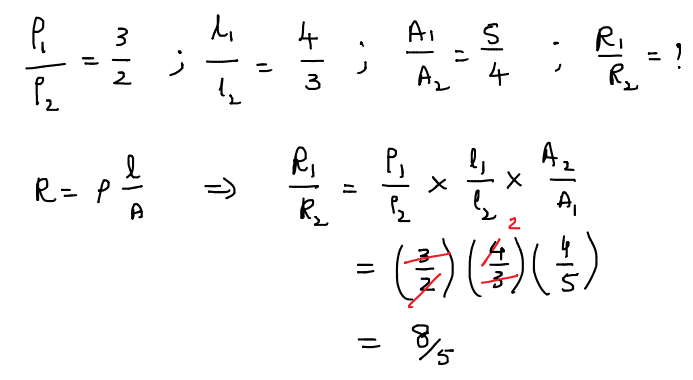 ρ₁/ρ₂ = 3/2 ; l₁/l₂ = 4/3 ; A₁/A₂ = 5/4 ; R₁/R₂ = ?
R = ρ l/A ⇒ R₁/R₂ = ρ₁/ρ₂ × l₁/l₂ × A₂/A₁
= (3/2) (4/3) (4/5) 2
= 8/5